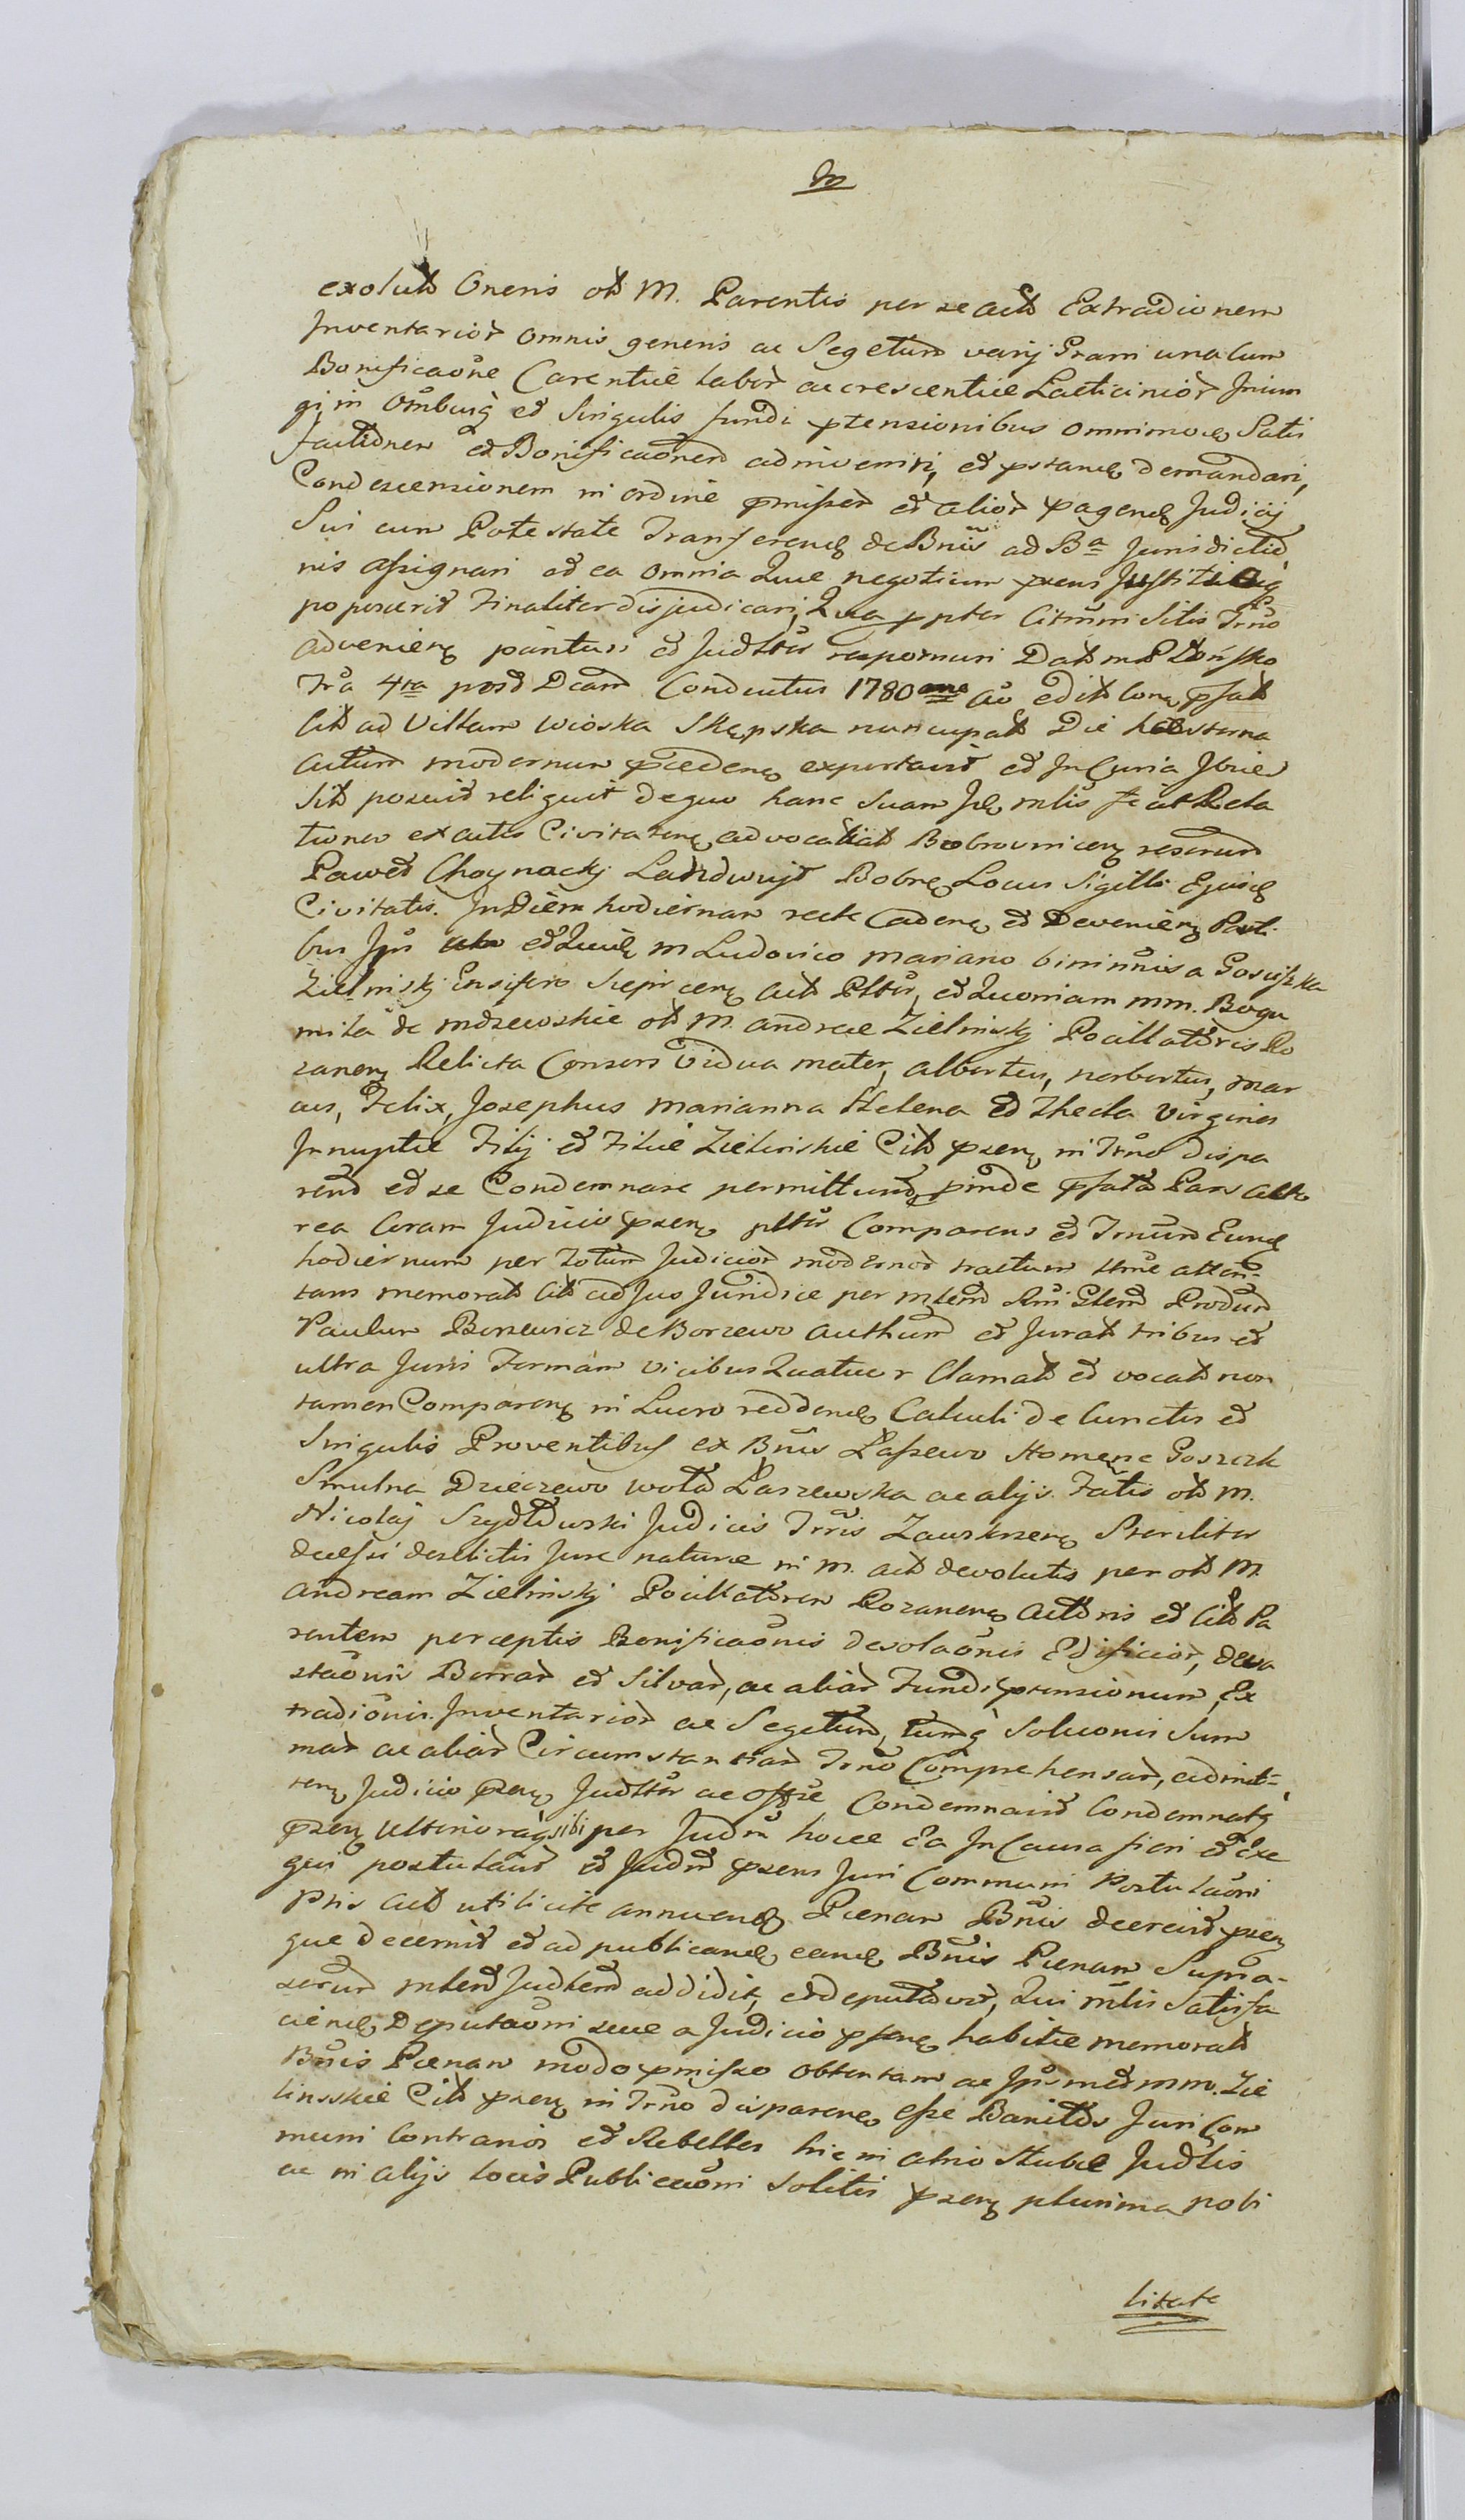 exolutt Oneris ott M. Parentis per se actt Extradionem
Inventarior omnis generis ac Segetum varij Grani una cum
Bonificaõne Carentiæ labor accrescentiæ Lacticinior Inium
gi in Omnbusq et Singulis fundi ptensionibus omnimode Satis
factionem et Bonificaõnem adinveniri, et pstand demandari,
Condescensionem in ordine pmissor et alior pagend Judicij
Sui cum Potestate Transferend de Bnis ad Bª Jurisdictio
nis assignari et ea omnia Quæ negotium psens Justitiaq
poposcerit Finaliter disjudicari, Qua ppter Citmi Sitis Trno
advenien parituri et Judltr responsuri Datt m Płońsko
Fra 4ta post Dcam Conductus 1780 Ao editt Con psatt
Citt ad Villam Wioska Skępska nuncupatt Die hesterna
actum modernum præceden exportavit et In Curia Ibid
Sitt posuit reliquit de quo hanc Suam Id mlis fecit Rela
tionem ex actis Civitaten advocatialt Bobrownicen reserund
Paweł Choynacky Landwuyt Bobr Locus Sigilli Ejusd
Civitatis. In Diem hodiernam recte Caden et Devenien Parti
bus Ips uto et Quid M Ludovico Mariano binimnis a Gosciszka
Zielinskj Ensifero Sieprcen actt Pltr, et Quoniam mm. Bogu
mila de Mdzewskie ott M. Andreæ Zielinskj Pocillatoris Ro
zanen Relicta Consors Vidua mater, Albertus, Norbertus, Mar
cus, Felix, Josephus Marianna Helena et Thecla Virgines
Innuptæ Filij et Filiæ Zielinskie Citt psen in Trno dispa
rend et se Condemnare permittund, pinde psata Pars acto
rea Coram Judicio psen pltr Comparens et Trnum Eund
hodiernum per totum Judicior modernor tractum stme atten
tans memoratt Citt ad Jus Juridice per mlem Rni Glem Provdum
Paulum Borzewicz de Borzewo authum et Juratt tribus et
ultra Juris Formam vicibus Quatuor Clamatt et vocatt non
tamen Comparen in Lucro reddend Calculi de Cunctis et
Singulis Proventibus ex Bnis Łaszewo Stomene Goszczk
Smulna Dzieczewo wola Łaszewska ac alijs Fatis ott M.
Nicolaj Szydłowski Judicis Trris Zawskrzen Steriliter
decessi derelictis Jure naturæ in M. actt devolutis per ott M.
Andream Zielinskj Pocillatorem Rozanen Actoris et Citt Pa
rentem perceptis Bonificaõnis desolaõnis Edificior, deva
staõnis Borrar et Silvar, ac aliar Fundi ptensionum Ex
tradiõnis Inventarior ac Segetum, tumq Soluonis Sum
mar ac aliar Circumstantiar Trno Comprehensar, admit=
ten Judicio psen Judltr ac offse Condemnavit Condemnatq
psen Ulterioraq sibi per Judm hocce Ea In Causa fieri et Exe
qui postulavit et Judm psens Juri Communi Postulaõni
Ptis actt utilicite annuend Pænam Bnis decrevit psen
que decernit et ad publicand eand Bnis Pænam Supra-
serum mlem Judlem addidit, et deputavit, Qui mlis Satisfa
ciend Deputaõni suæ a Judicio psend habitæ memoratt
Bnis Pænam modo pmisso obtentam ac Ipsmet mm. Zie
linsskie Citt psen in Trno disparen esse Banitos Juri Com
muni Contrarios et Rebelles hic in atrio Stubæ Judlis
ac in alijs locis Publicaõni Solitis psen plurima nobi
litate